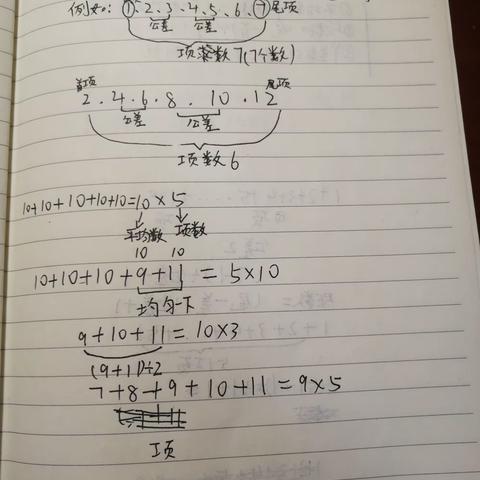 例如: ①.2.3.4.5.6.⑦尾项
公差 公差
项数7(7个数)
首项 尾项
2.4.6.8.10.12
公差 公差
项数6
10+10+10+10+10=10×5
平均数 项数
10 10
10+10+10+9+11=5×10
均匀一下
9+10+11=10×3
(9+11)÷2
7+8+9+10+11=9×5
项